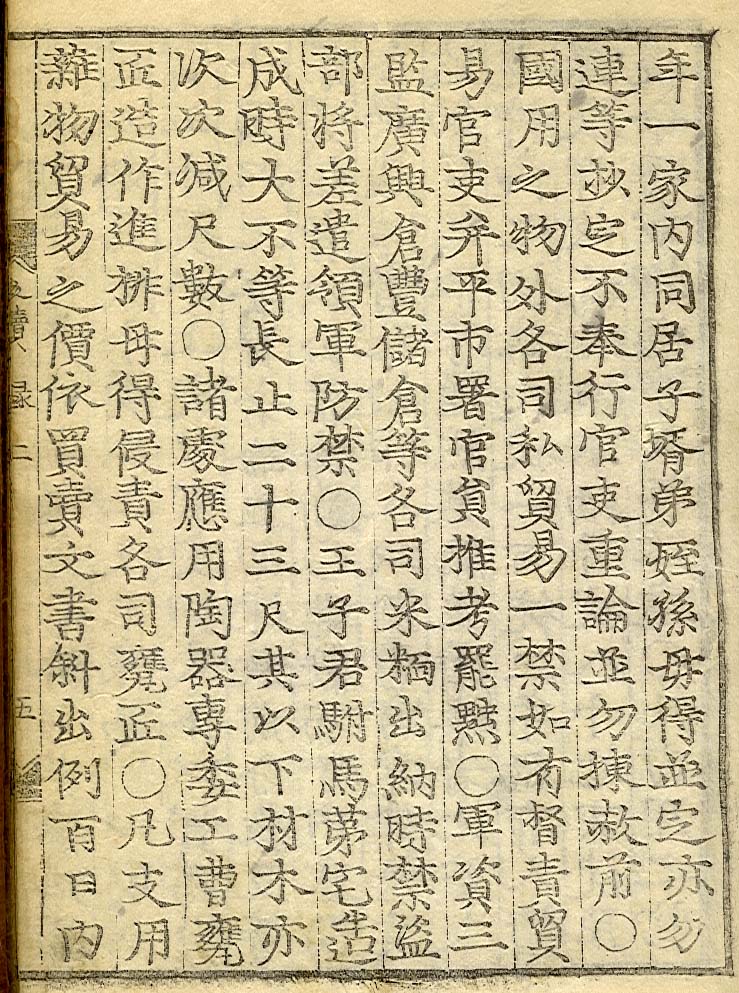 年一家內同居子壻弟姪孫毋得並定亦勿
連等抄定不奉行官吏重論並勿揀赦前○
國用之物外各司私貿易一禁如有督責貿
易官吏弁平市署官員推考罷黜○軍資三
監廣興倉豐儲倉等各司米糆出納時禁盜
部將差遣領軍防禁○王子君駙馬苐宅造
成時大不等長止二十三尺其以下材木亦
次次减尺數○諸處應用陶器專委工曹甕
匠造作進排毋得侵責各司甕匠○凡支用
雜物貿易之價依買賣文書斜出例百日內
續錄二
五